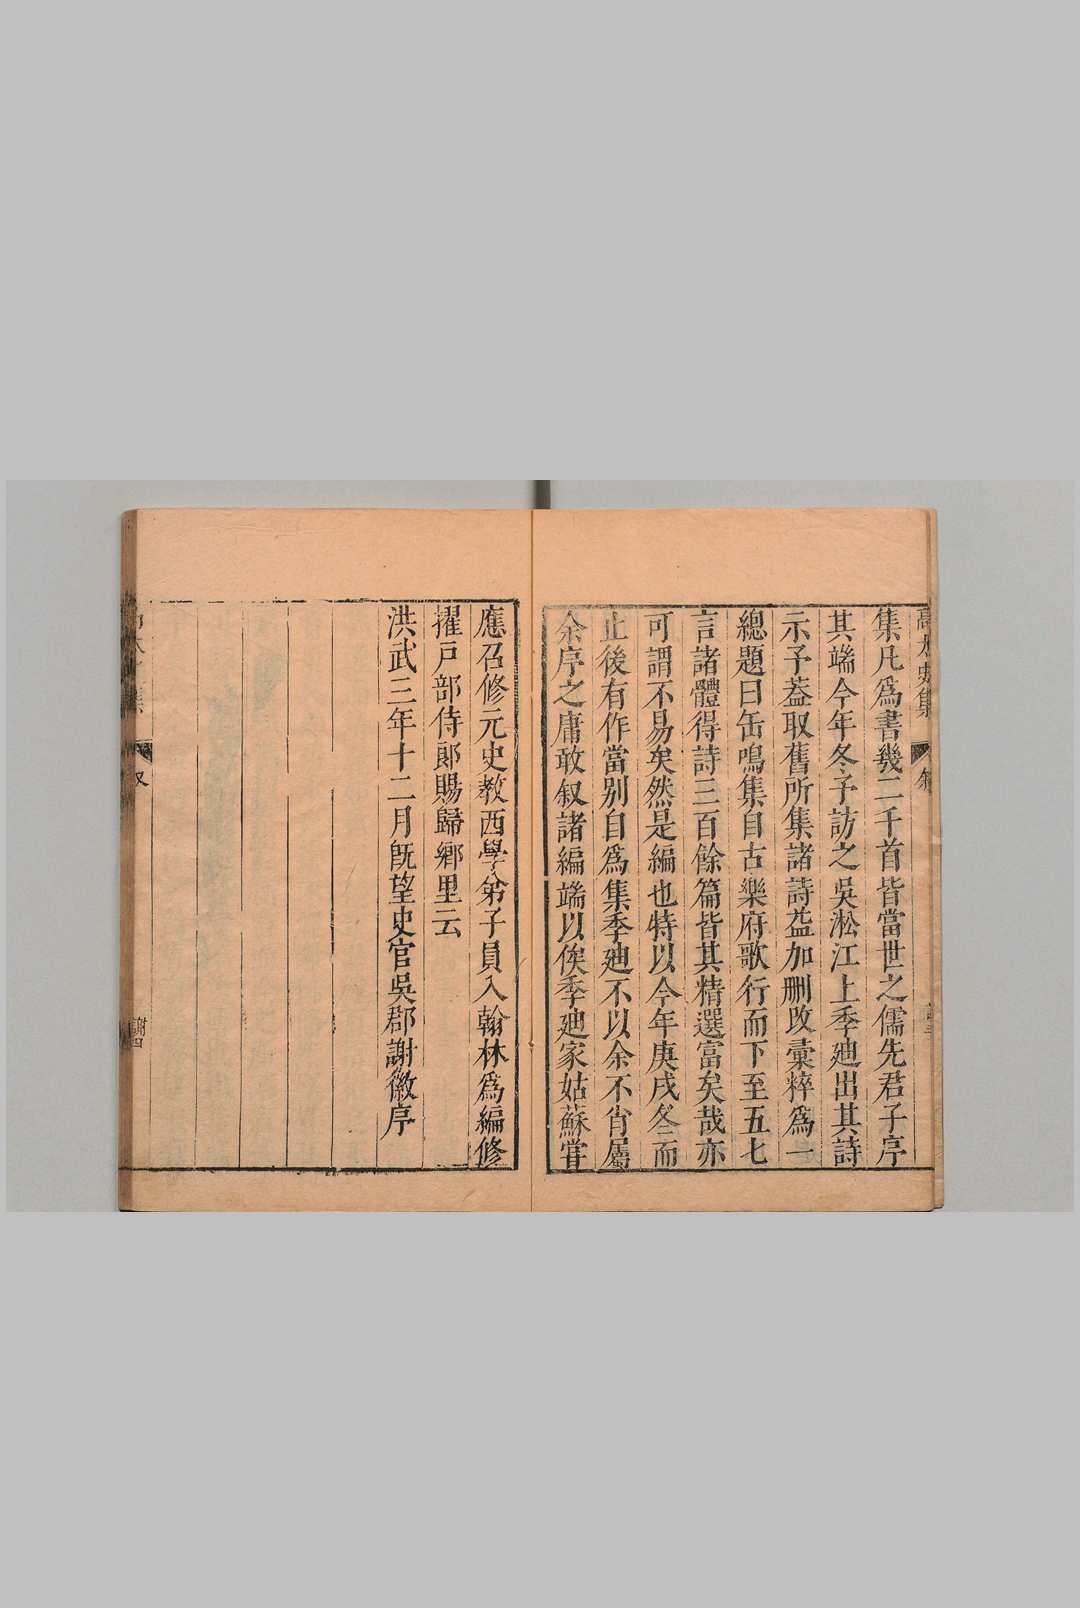 集凡爲書幾二千首皆當世之儒先君子序
其端今年冬予訪之吳淞江上季廸出其詩
示予葢取舊所集諸詩益加删改彙粹爲一
總題曰缶鳴集自古樂府歌行而下至五七
言諸體得詩三百餘篇皆其精選富矣哉亦
可謂不易矣然是編也特以今年庚戌冬而
止後有作當别自爲集季廸不以余不肖屬
余序之庸敢叙諸編端以俟季廸家姑蘇甞
應召修元史教西學弟子員入翰林爲編修
擢戸部侍郎賜歸鄉里云
洪武三年十二月旣望史官吳郡謝徽序
謝四